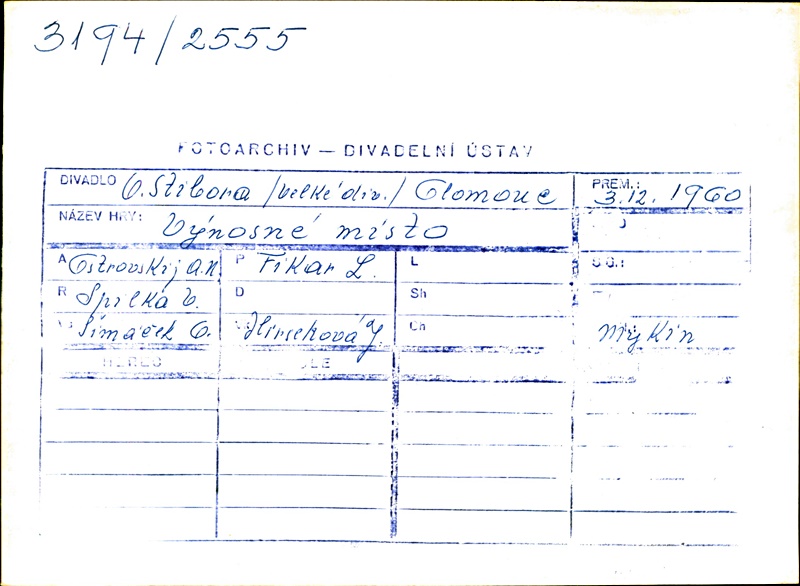 3194/2555
FOTOARCHIV — DIVADELNÍ ÚSTAV
DIVADLO O. Stibora /velké div./ Olomouc PREM.: 3.12. 1960
NÁZEV HRY: Výnosné místo
A Ostrovskij A.N. P Fikar L. L
R Spilka V. D Sh
Šimáček O. Hirschová J. Ch Mykin